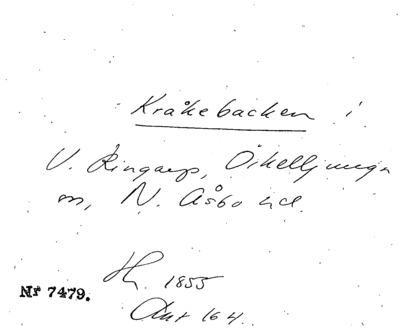 Kråkebacken i
V. Ringarp, Örkelljunga
m, N. Åsbo hd.
Hz. 1855
Nr 7479.
Akt 164.